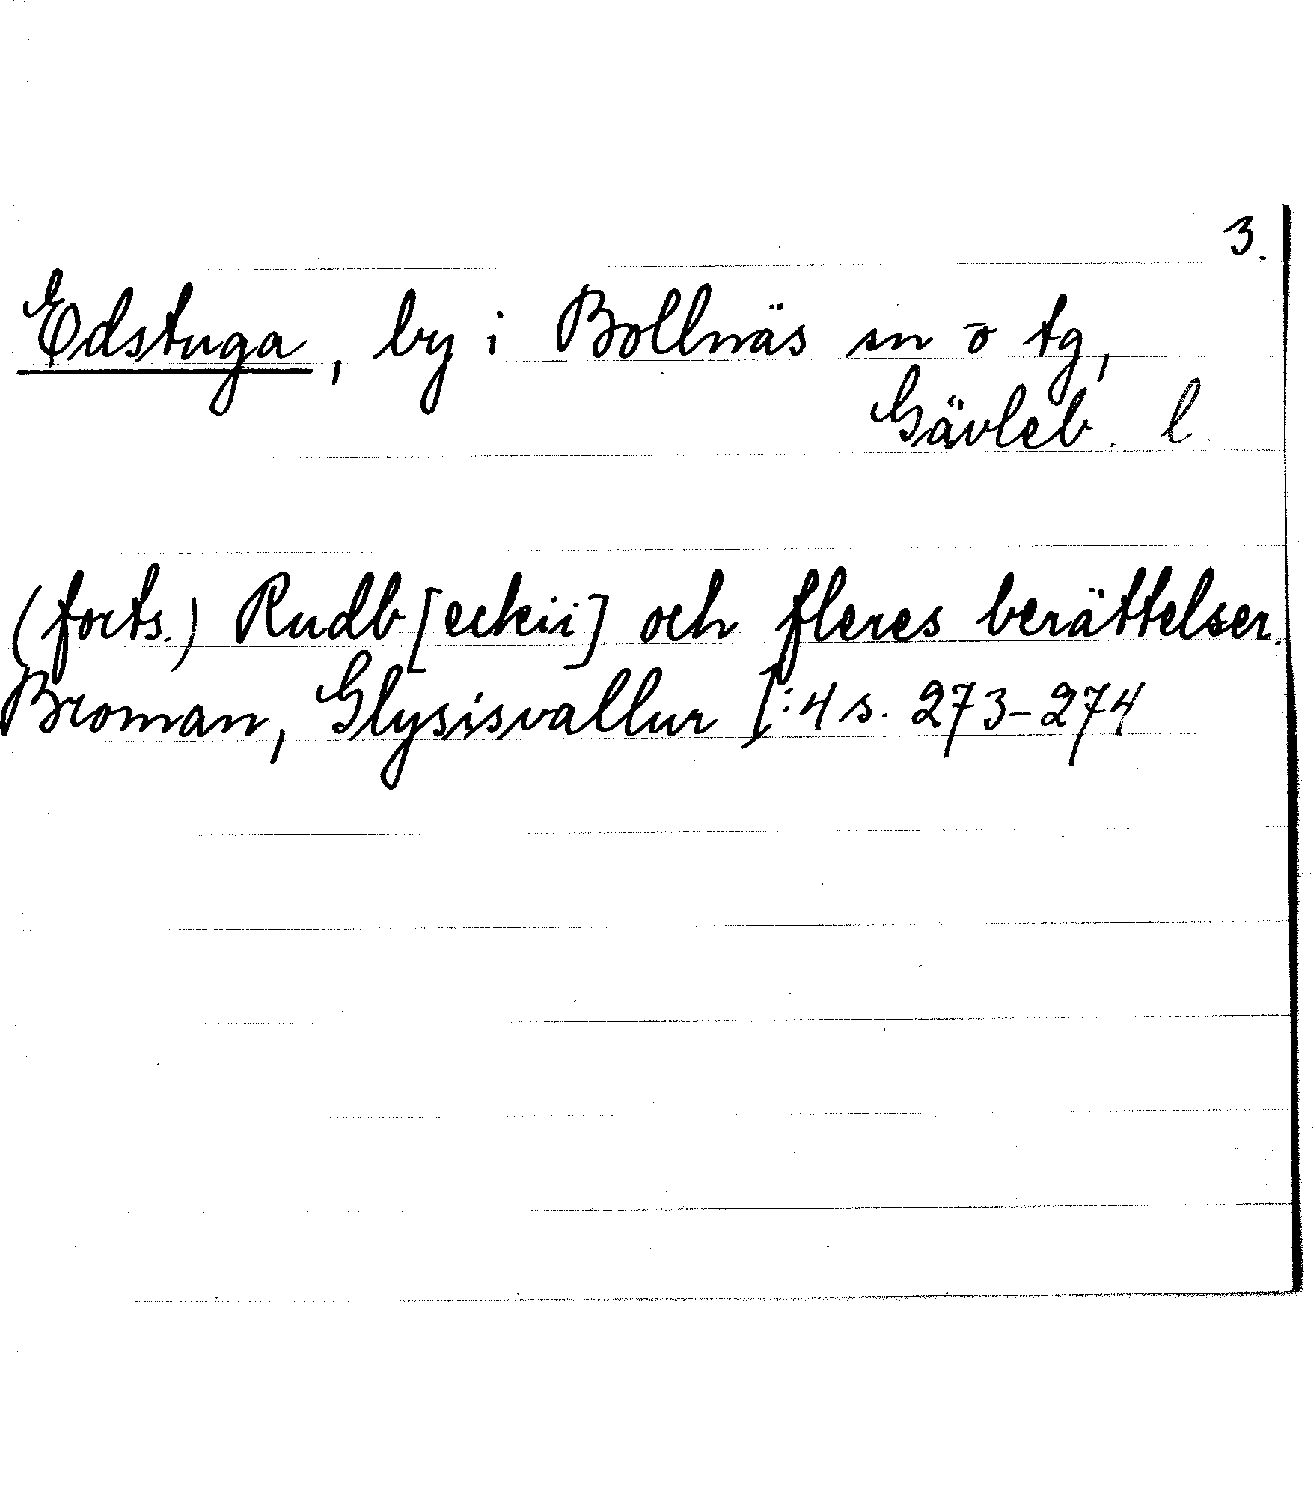 3.
Edstuga, by i Bollnäs sn o tg,
Gävleb. l
(forts.) Rudb[eckii] och fleres berättelser.
Broman, Glysisvallur I:4 s. 273-274